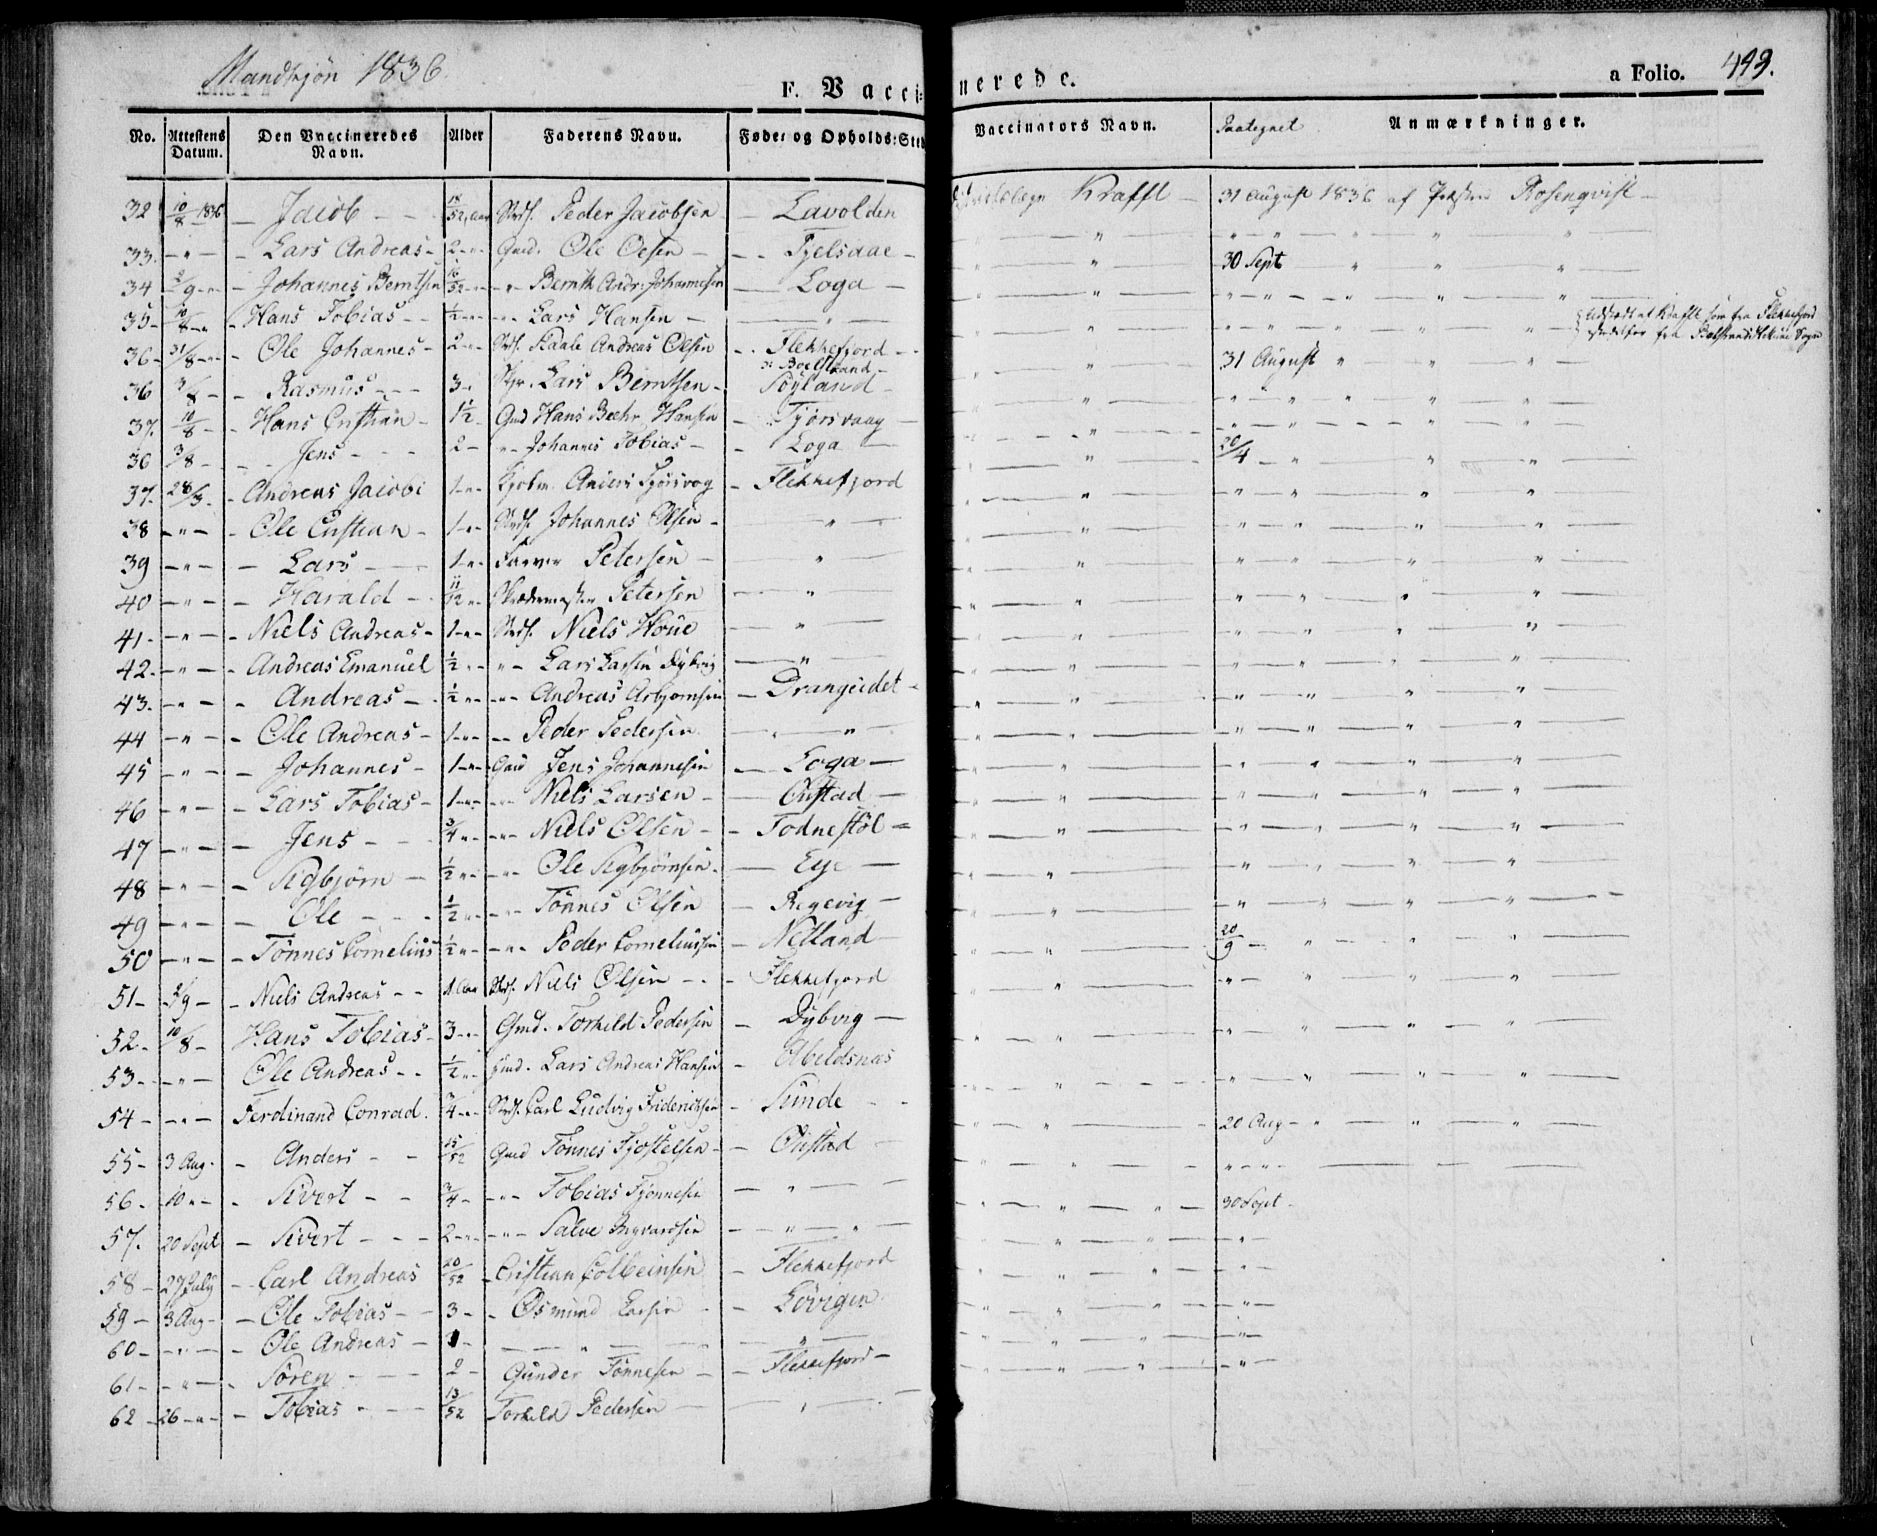 Mandkjön 1836.
F. Vaccinerede.
a Folio. 499.
No. Attestens Datum. Den Vaccineredes Navn. Alder Faderens Navn. Føde- og Opholds-Sted Vaccinators Navn. Paategnet Anmærkninger.
32 10/8 1836 — Jacob — — 18/52 Aar Peder Jacobsen — Lavolden Krafft — 31 August 1836 af Rosenqvist —
33. — " — - Lars Andreas - 2 - " Gmd. Ole Oesen — - - Fjelsaae — " " " " "
34 2/9 - " - Johannes Berntsen 16/52 " - " Bernth Andr. Johannesen — Loga — " 30 Sept " " "
35 - 10/8 - " - Hans Tobias - - 1/2 - " - " Lars Hansen — — " — " " " "
36 - 31/8 - " - Ole Johannes - 2 - " Andreas Olsen - - Flekkefjord - - " " " " "
36 3/8 - - Rasmus - - - 3 - Lars Berntsen - Töyland - " 31 August " " "
37. 10/8 - - Hans Cristian - 1 1/2 - Gmd Hans Hansen - Tjørsvaag — " " " " "
36 3/8 - - - Jens - - - 2 - " - Johannes Tobias - - Loga — " " " " "
37. 28/3 - - Andreas Jacobi 1 - " - Anders Tjørsvog - Flekkefjord " 20/4 - " " "
38 - " - - Ole Cristian - 1 - " Johannes Olsen - — " — " " " " "
39 - " - - Lars - — 1 - " - Farver Petersen — — " — " " " " "
40 - " - - Harald - - 11/12 " - Petersen — " — " " " " "
41 - - " - - Niels Andreas - 1 - " - Niels Houe — " — " " " " "
42 - - " - - Andreas Emanuel 1/2 - - " - Lars Larsen Dybvig — " — " " " " "
43. - " - - Andreas - - 1/2 " - - " - Andreas Asbjornsen - Drangeidet - " " " " "
44 - " - - Ole Andreas - 1 - " - - " - Peder Pedersen — " — " " " " "
45 - " - - Johannes - 1 - " - Gmd Jens Johannesen — Loga — " " " " "
46 - " - - Lars Tobias - 1 - " - - " - Niels Larsen - — Öistad — " " " " "
47 - " - - Jens - - - 3/4 " - - " - Niels Olsen - - Todnestöl - " " " " "
48 - " - - Sigbjörn - 1/2 " - - " - Ole Sigbjørnsen - — Eye — " " " " "
49 - " - - Ole - - - 1/2 " - - " - Tönnes Olsen - Regevig — " " " " "
50 - " - - Tönnes Cornelius 1/2 " - - " - Peder Corneliussen - Netland — " 20/9 - " " "
51 - 2/9 - - Niels Andreas - - 1 Aar Niels Olsen - - - Flekkefjord " " " " "
52 - 10/8 - Hans Tobias - 3 - " Gmd. Torkeld Pedersen - Dybvig — " " " " "
53 - - " - Ole Andreas - - 1/2 " - Gmd. Lars Andreas Hansen - Abeldsnæs " " " " "
54 - - " - Ferdinand Conrad. 3/4 - " Carl Ludvig Fridericksen - Sunde - - " 20 Aug - " " "
55 - 3 Aug - - Anders - - 15/52 Gmd Tönnes Tjøstelsen - - Öiestad — " " " "
56 - 10 " - - Sivert - - 3/4 - - " - Tobias Tjönnesen — " — " " 30 Sept -
57. 20 Sept - Sivert - - - 2 - " - - " - Salve Ingvardsen — " — " — " " " - " -
58 - 27 July - Carl Andreas 20/52 - Cristian Colbeinsen - Flekkefjord " " " - " -
59 - 3 Aug - - Ole Tobias - - 3 - - Osmund Larsen - - Lövigen " " " - " -
60 - - " - - Ole Andreas - 1 - — " — — " — " " " - " -
61 - - " - - Sören - - - 2 - Gunder Tönnesen - - Flekkefjord - " " " - " -
62 - 26 - " - - Tobias - - - 13/52 Torkeld Pedersen — — " —